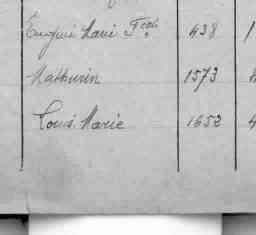 Eugène Marie Fçois 438 1
Mathurin 1573
Louis Marie 1652 4